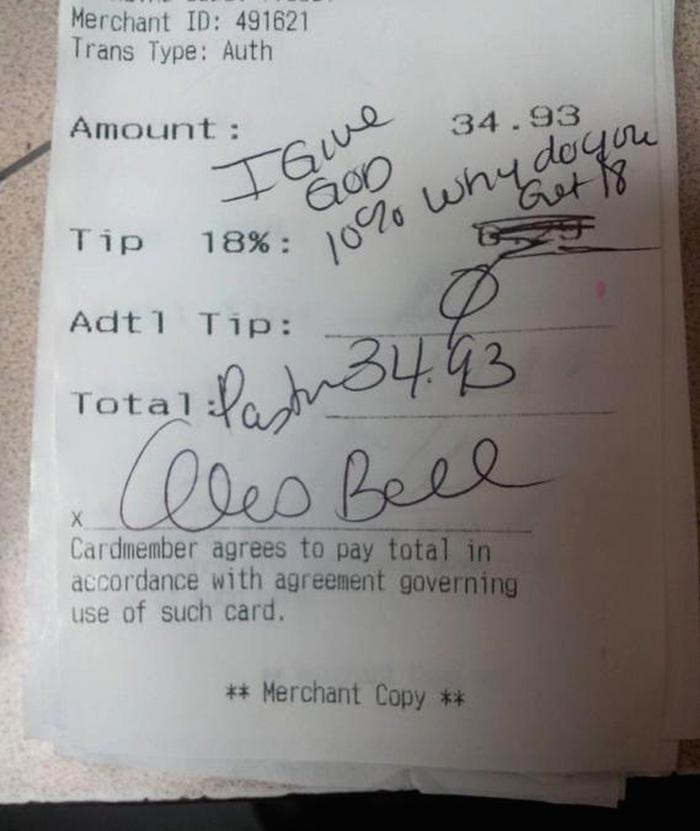 Merchant ID: 491621
Trans Type: Auth
Amount: 34.93
I Give
God
10% Why do you
Get 18
Tip 18%: 6.29
Adtl Tip: 0
Total: Pastor 34.93
x Alois Bell
Cardmember agrees to pay total in
accordance with agreement governing
use of such card.
** Merchant Copy **